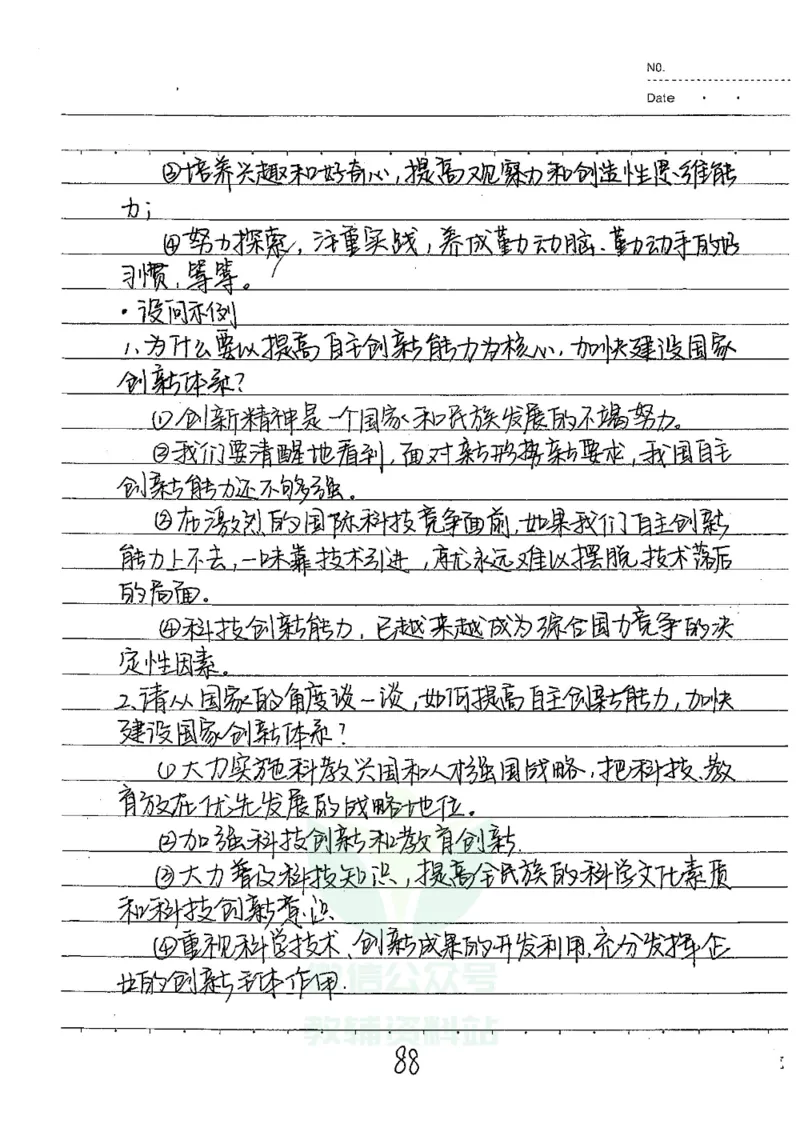 NO.
Date
③培养兴趣和好奇心,提高观察力和创造性思维能
力;
④努力探索,注重实战,养成勤动脑、勤动手的好
习惯,等等。
·设问示例
1.为什么要以提高自主创新能力为核心,加快建设国家
创新体系?
①创新精神是一个国家和民族发展的不竭努力。
②我们要清醒地看到,面对新形势新要求,我国自主
创新能力还不够强。
③在激烈的国际科技竞争面前,如果我们自主创新
能力上不去,一味靠技术引进,就永远难以摆脱技术落后
的局面。
④科技创新能力,已越来越成为综合国力竞争的决
定性因素。
2.请从国家的角度谈一谈,如何提高自主创新能力,加快
建设国家创新体系?
①大力实施科教兴国和人才强国战略,把科技、教
育放在优先发展的战略地位。
②加强科技创新和教育创新.
③大力普及科技知识,提高全民族的科学文化素质
和科技创新意识.
④重视科学技术、创新成果的开发利用,充分发挥企
业的创新主体作用.
微信公众号
教辅资料站
88